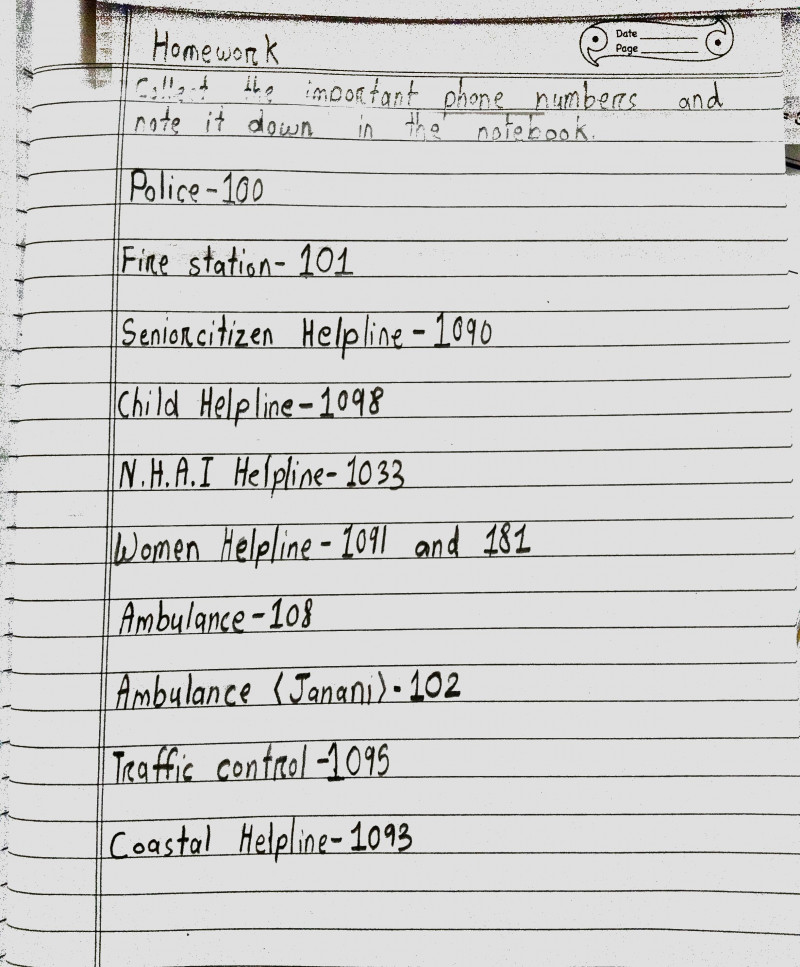 Date
Page
Homework
Collect the important phone numbers and
note it down in the notebook.
Police-100
Fire station- 101
Seniorcitizen Helpline - 1090
Child Helpline-1098
N.H.A.I Helpline- 1033
Women Helpline - 1091 and 181
Ambulance-108
Ambulance (Janani)-102
Traffic control -1095
Coastal Helpline-1093